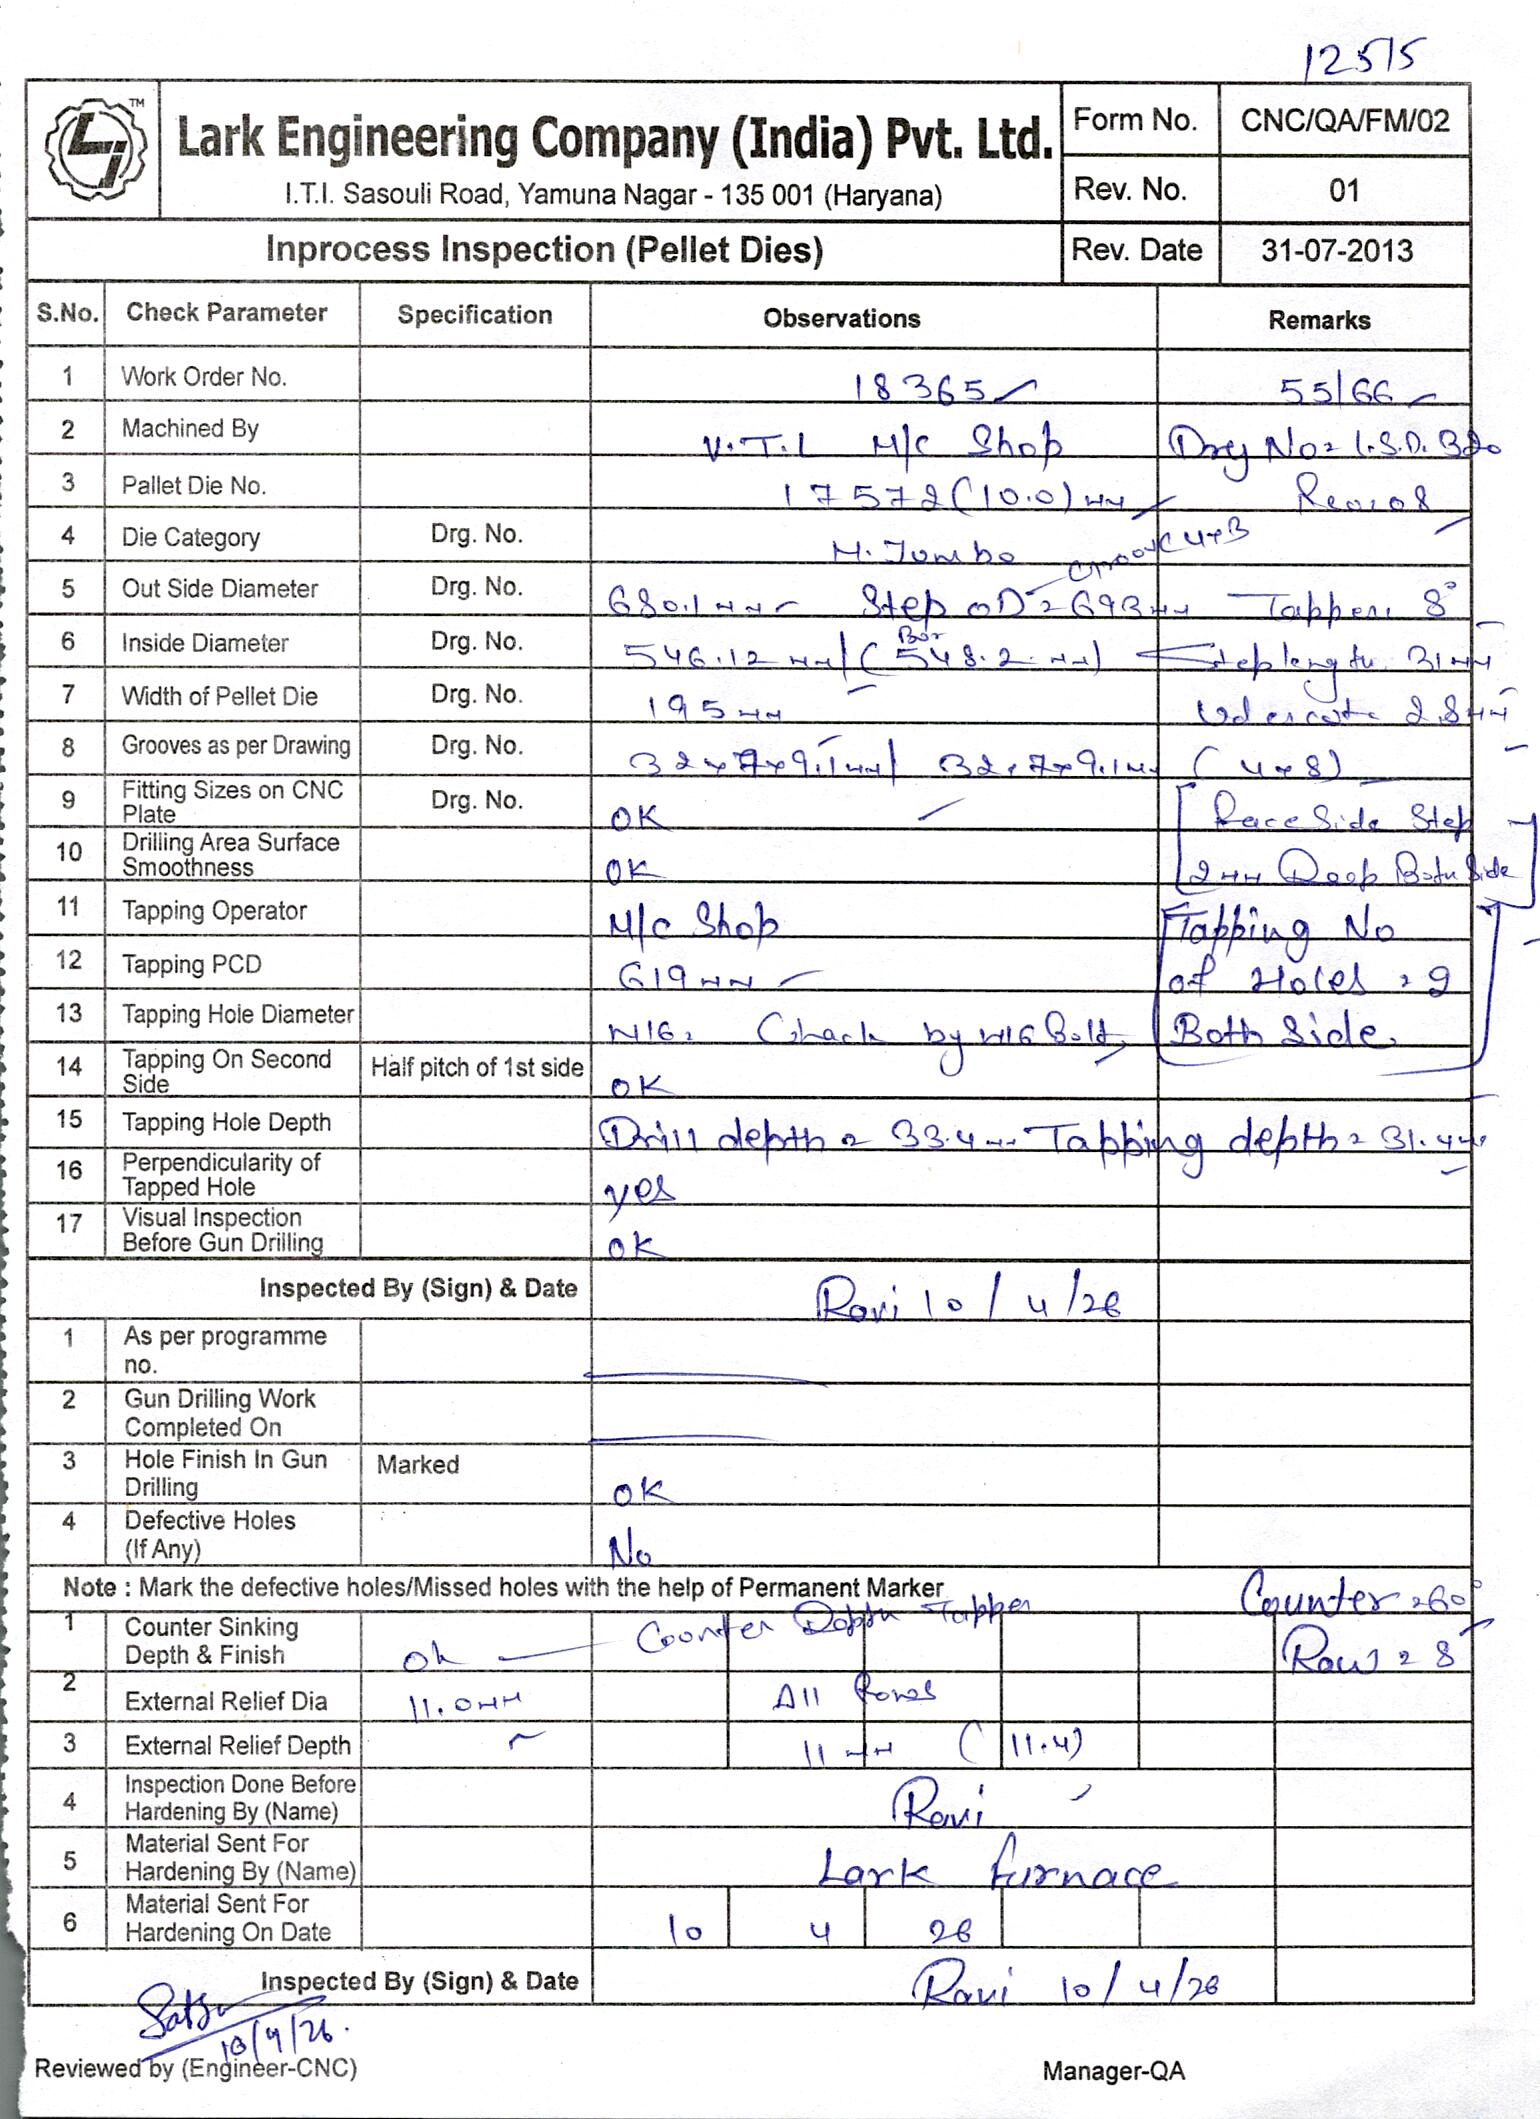 12515
TM
Lark Engineering Company (India) Pvt. Ltd.
I.T.I. Sasouli Road, Yamuna Nagar - 135 001 (Haryana)
Form No. CNC/QA/FM/02
Rev. No. 01
Inprocess Inspection (Pellet Dies) Rev. Date 31-07-2013
S.No. Check Parameter Specification Observations Remarks
1 Work Order No. 18365 55/66
2 Machined By V.T.L M/c Shop Drg No= 320
3 Pallet Die No. 17572 (10.0) mm
4 Die Category Drg. No. M. Jumbo
5 Out Side Diameter Drg. No. 680.1 mm Step OD = 693 mm Tapper 8°
6 Inside Diameter Drg. No. 546.12 mm / (548.2 mm) Step length 31 mm
7 Width of Pellet Die Drg. No. 195 mm 2.8 mm
8 Grooves as per Drawing Drg. No. 32x7x9.1 mm / 32x7x9.1 mm (4+8)
9 Fitting Sizes on CNC Plate Drg. No. OK Side Step
10 Drilling Area Surface Smoothness OK 2 mm Deep Both Side
11 Tapping Operator M/c Shop Tapping No
12 Tapping PCD 619 mm of Holes = 9
13 Tapping Hole Diameter M16. Check by M16 Bolt, Both Side.
14 Tapping On Second Side Half pitch of 1st side OK
15 Tapping Hole Depth Drill depth = 33.4 mm Tapping depth = 31.4 mm
16 Perpendicularity of Tapped Hole yes
17 Visual Inspection Before Gun Drilling OK
Inspected By (Sign) & Date Ravi 10/4/26
1 As per programme no.
2 Gun Drilling Work Completed On
3 Hole Finish In Gun Drilling Marked OK
4 Defective Holes (If Any) No
Note : Mark the defective holes/Missed holes with the help of Permanent Marker Counter = 60°
1 Counter Sinking Depth & Finish Ok Counter Depth Tapper Rows = 8
2 External Relief Dia 11.0 mm All Rows
3 External Relief Depth 11 mm (11.4)
4 Inspection Done Before Hardening By (Name) Ravi
5 Material Sent For Hardening By (Name) Lark furnace
6 Material Sent For Hardening On Date 10 4 26
Inspected By (Sign) & Date Ravi 10/4/26
10/4/26.
Reviewed by (Engineer-CNC) Manager-QA